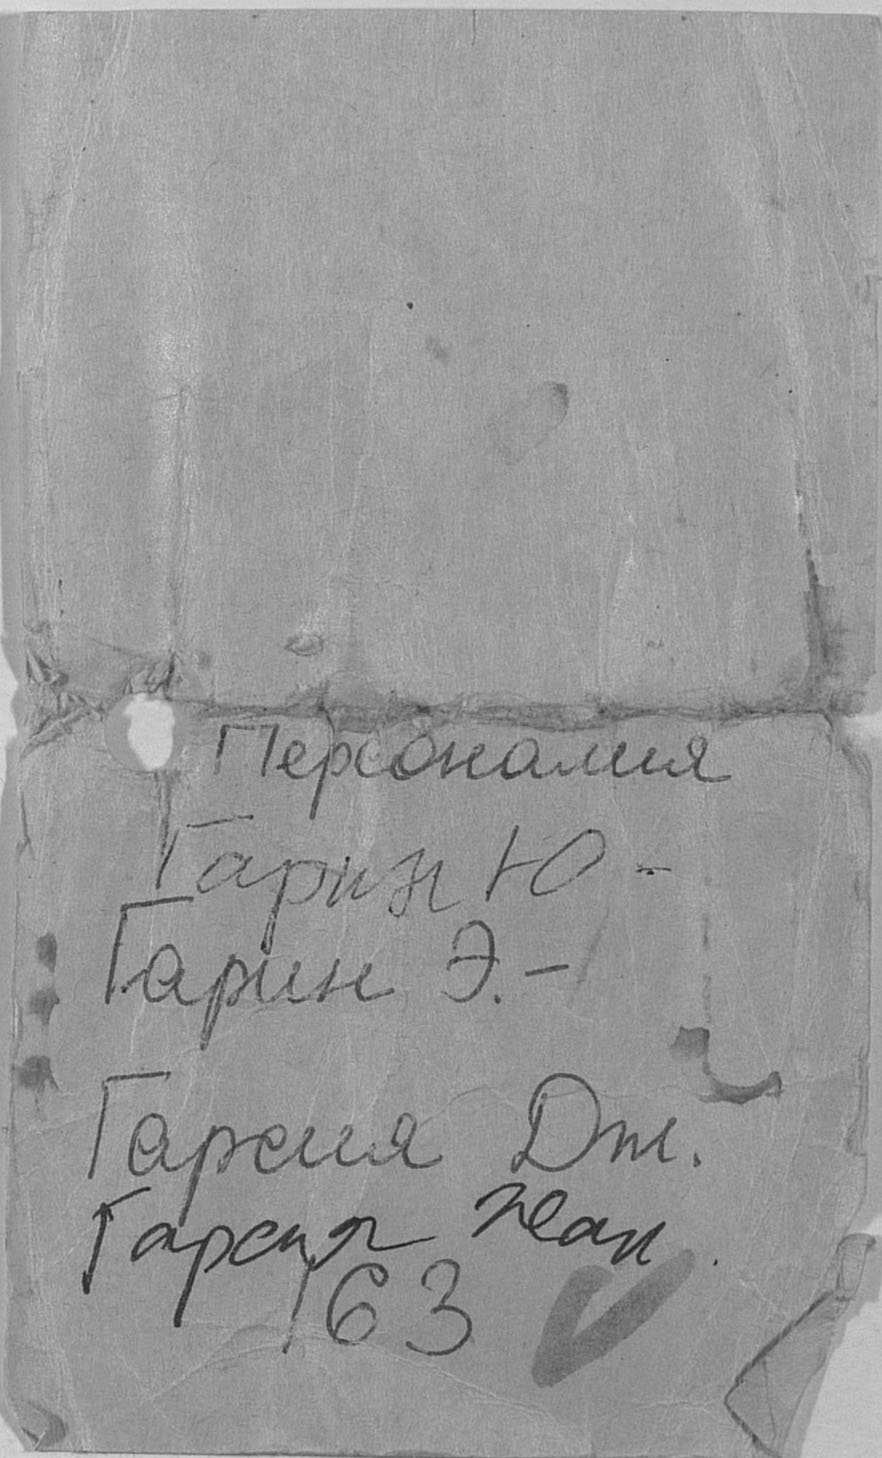 Персоналия
Гарин Ю -
Гарин Э. -
Гарсия Дж.
Гарсия Жан
163